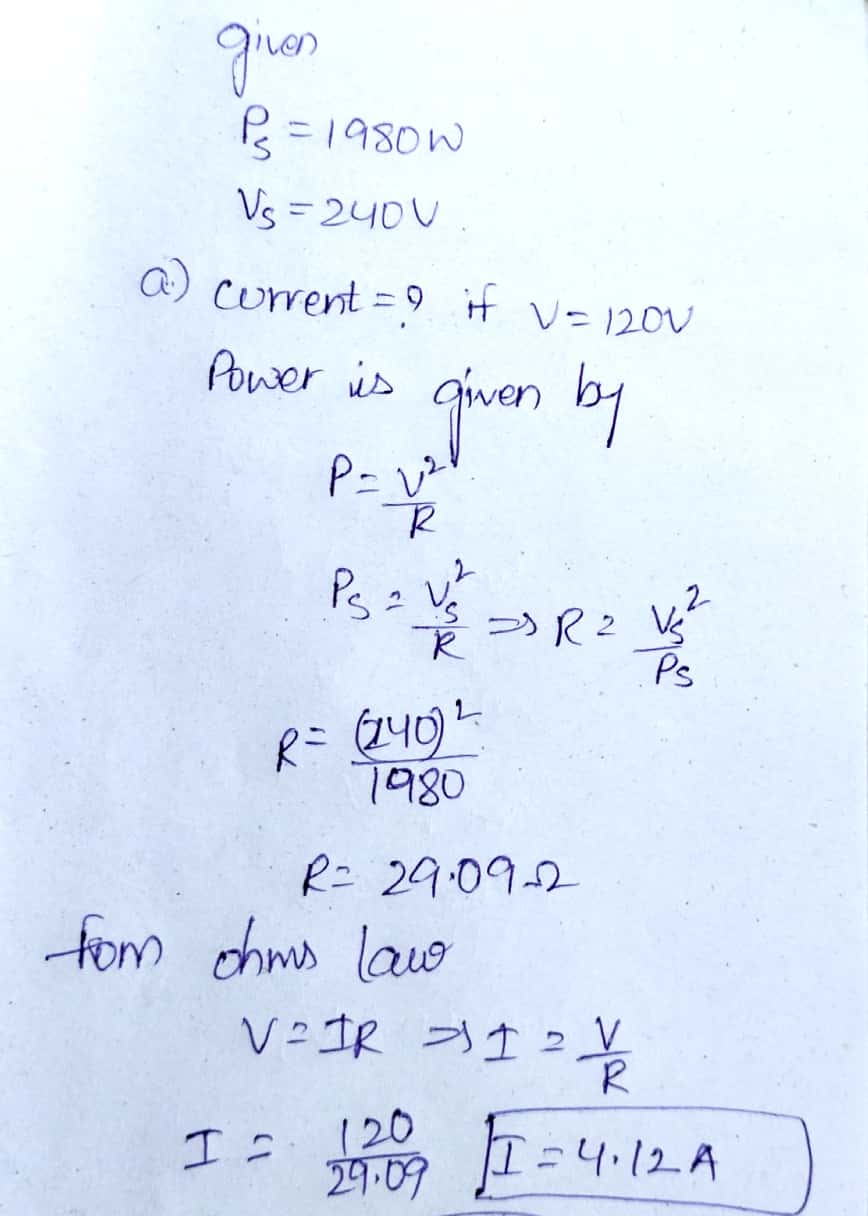 given
Ps = 1980W
Vs = 240V
a) current = ? if V = 120V
Power is given by
P = V²/R
Ps = Vs²/R ⇒ R = Vs²/Ps
R = (240)²/1980
R = 29.09Ω
from ohms law
V = IR ⇒ I = V/R
I = 120/29.09 I = 4.12A